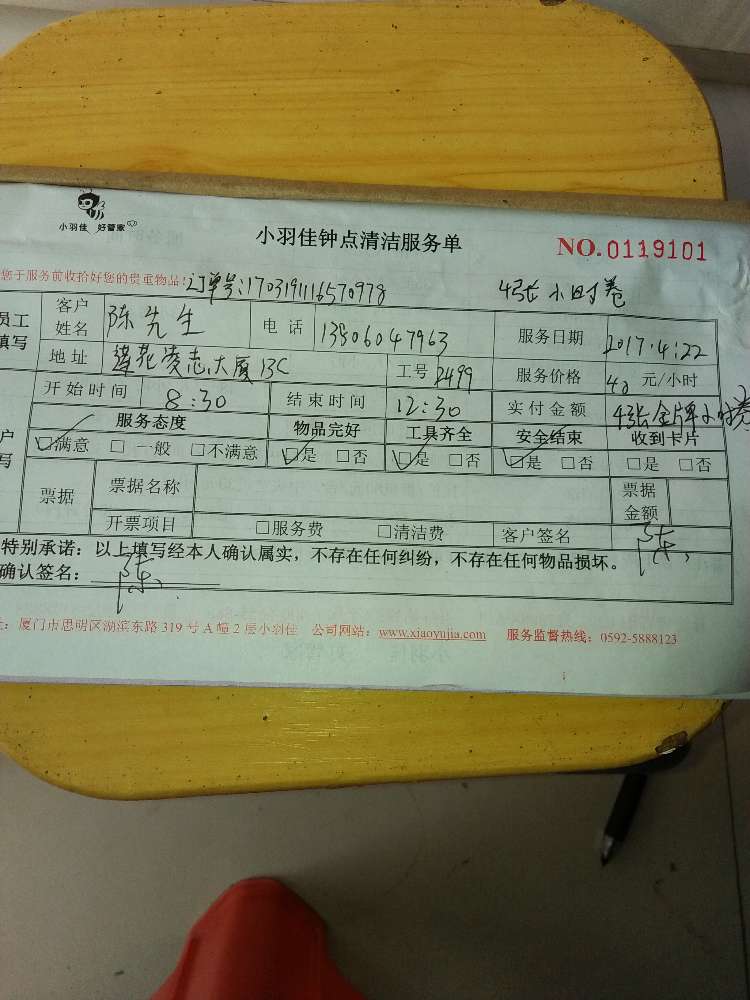 小羽佳 好管家
小羽佳钟点清洁服务单 NO.0119101
您于服务前收拾好您的贵重物品! 订单号:170319111657097​8 4张小时卷
员工填写 客户姓名 陈先生 电话 13906047963 服务日期 2017.4.22
地址 莲花凌志大厦13C 工号 2499 服务价格 40 元/小时
开始时间 8:30 结束时间 12:30 实付金额 4张金牌小时卷
服务态度 物品完好 工具齐全 安全结束 收到卡片
☑满意 □一般 □不满意 ☑是 □否 ☑是 □否 ☑是 □否 □是 □否
票据 票据名称 票据金额
开票项目 □服务费 □清洁费 客户签名 陈
特别承诺：以上填写经本人确认属实，不存在任何纠纷，不存在任何物品损坏。
确认签名： 陈
厦门市思明区湖滨东路 319 号 A 幢 2 层小羽佳 公司网站：www.xiaoyujia.com 服务监督热线：0592-5888123